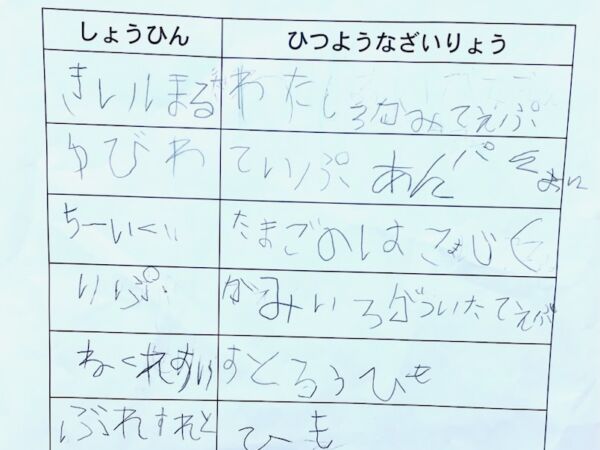 しょうひん ひつようなざいりょう
まる わたしろがみてえぷ
ゆびわ ていぷ あんパ
ちーいく たまごのは
りぷ がみいろがついたてえぷ
ねくれすい すとろうひも
ぶれすれと ひも